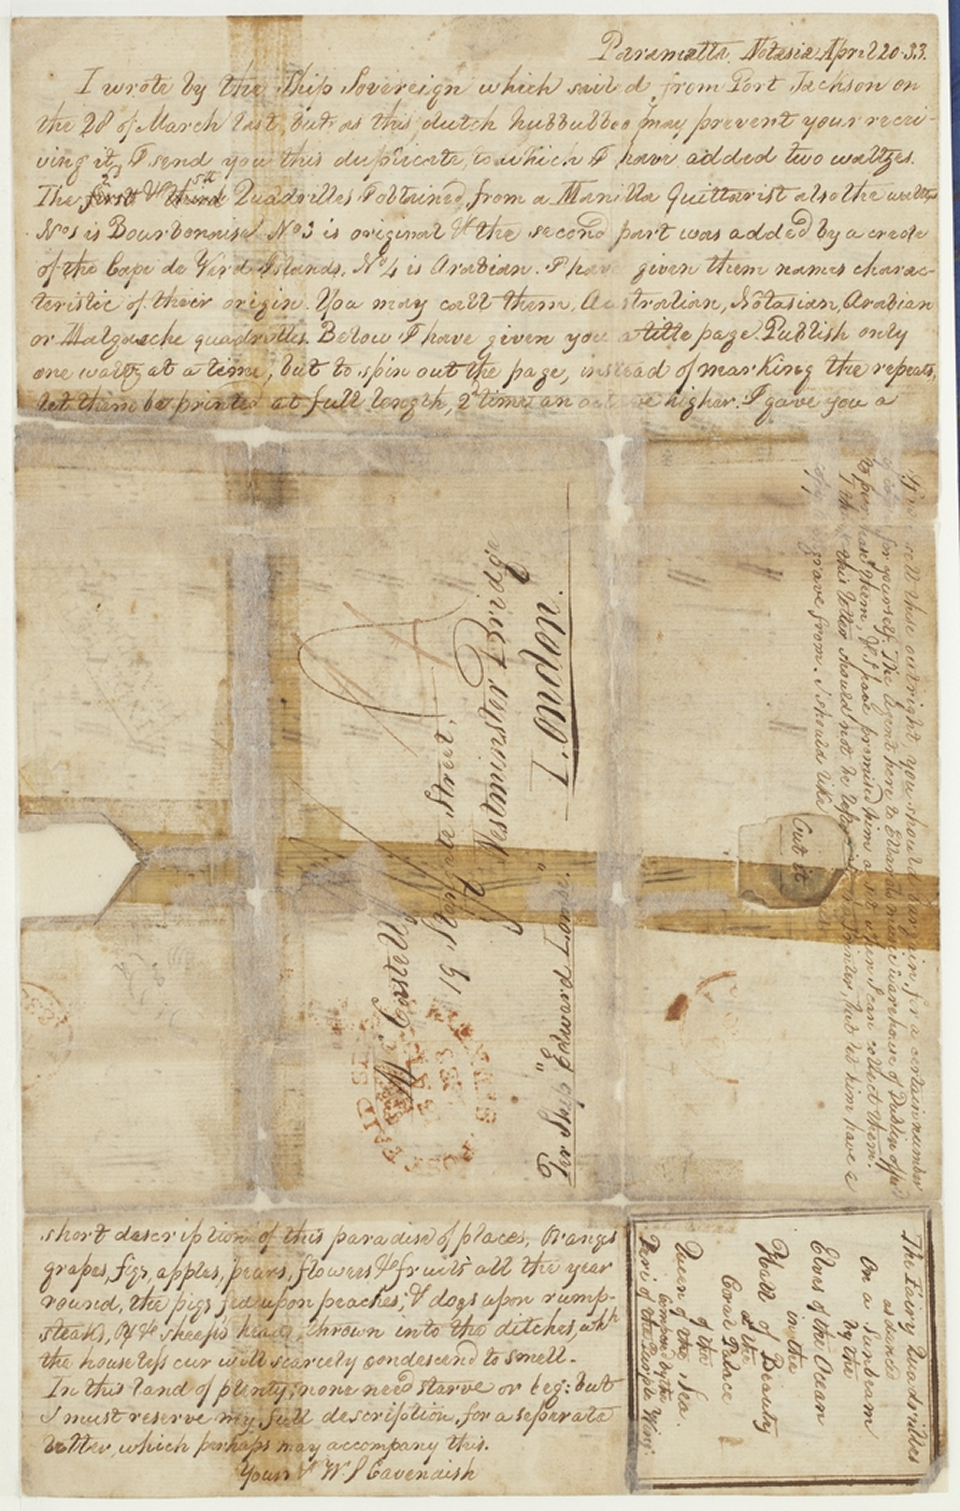 Paramatta. Notasia April 20. 33.
I wrote by the Ship Sovereign which sailed from Port Jackson on
the 28 of March last, but as this dutch hubbubboo may prevent your recei-
ving it, I send you this duplicate, to which I have added two waltzes.
The first & third Quadrilles I obtained from a Manilla Guittarist also the waltzes
2d 5th
No 1 is Bourbonaise No 3 is original & the second part was added by a creole
of the Cape de Verd Islands. No 4 is Arabian. I have given them names charac-
teristic of their origin. You may call them, Australian, Notasian, Arabian
or Malgasche quadrilles. Below I have given you a title page. Publish only
one waltz at a time, but to spin out the page, instead of marking the repeats,
let them be printed at full length, 2d time an octave higher. I gave you a
sell these outright you should bargain for a certain number
for yourself. The Agent here to Willards music warehouse of Dublin
to purchase them, & I have promised him a set when I can collect them.
this letter should not be printer, but let him have a
copy to engrave from. I should like
Cut it
Mr Castell,
19 Stangate Street,
Westminster Bridge
London.
Per Ship "Edward Lombe."
PAID
short description of this paradise of places, Oranges
grapes, figs, apples, pears, flowers & fruits all the year
round, the pigs fed upon peaches, & dogs upon rump-
steaks, Ox & sheep's head, thrown into the ditches, whh
the houseless cur will scarcely condescend to smell.
In this land of plenty, none need starve or beg: but
I must reserve my full description, for a separate
letter, which perhaps may accompany this.
Yours & W J Cavendish
The Fairy Quadrilles
as danced
On a Sunbeam
by the
Elves of the Ocean
in the
Hall of Beauty
at the
Coral Palace
of the
Queen of the Sea.
composed by the
Peri of the Purple Wing